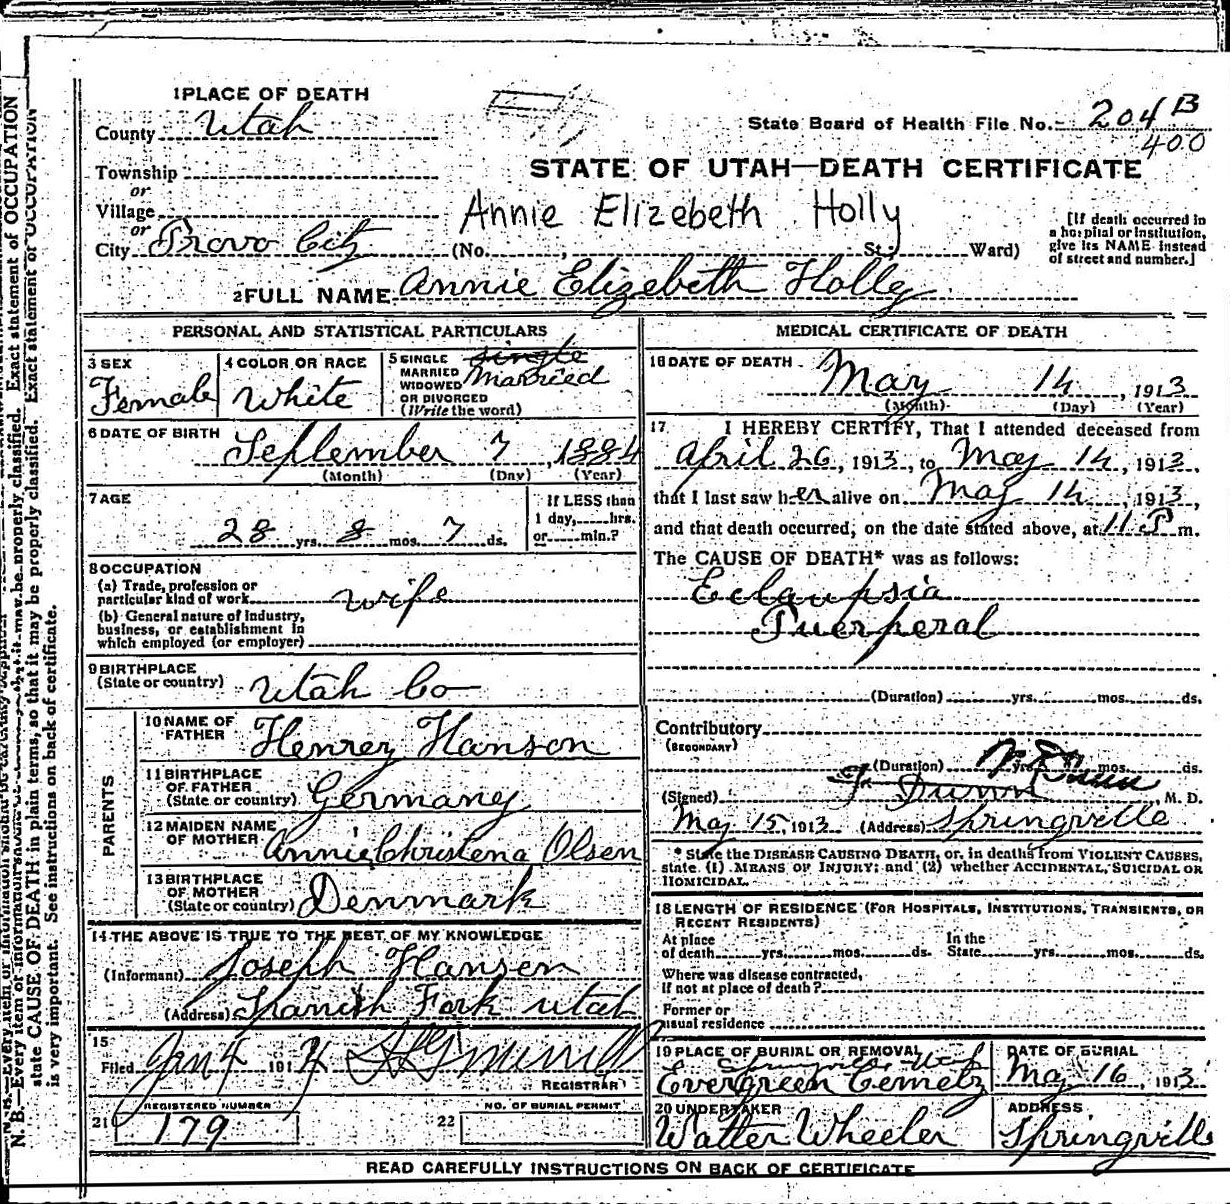 1 PLACE OF DEATH
County Utah
State Board of Health File No. 204 B
400
Township
or
Village
or
City Provo City
STATE OF UTAH—DEATH CERTIFICATE
Annie Elizebeth Holly
(No. , St.; Ward)
[If death occurred in a hospital or institution, give its NAME instead of street and number.]
2 FULL NAME Annie Elizebeth Holly
PERSONAL AND STATISTICAL PARTICULARS
3 SEX
Female
4 COLOR OR RACE
White
5 SINGLE
MARRIED
WIDOWED
OR DIVORCED
(Write the word)
single
Married
6 DATE OF BIRTH
September 7, 1884
(Month) (Day) (Year)
7 AGE
28 yrs. 8 mos. 7 ds.
If LESS than
1 day, hrs.
or min.?
8 OCCUPATION
(a) Trade, profession or
particular kind of work wife
(b) General nature of industry,
business, or establishment in
which employed (or employer)
9 BIRTHPLACE
(State or country) Utah Co
PARENTS
10 NAME OF
FATHER Henrey Hanson
11 BIRTHPLACE
OF FATHER
(State or country) Germany
12 MAIDEN NAME
OF MOTHER Annie Christena Olsen
13 BIRTHPLACE
OF MOTHER
(State or country) Denmark
14 THE ABOVE IS TRUE TO THE BEST OF MY KNOWLEDGE
(Informant) Joseph Hansen
(Address) Spanish Fork Utah
15
Filed Jan 191
REGISTRAR
REGISTERED NUMBER
21 179
NO. OF BURIAL PERMIT
22
MEDICAL CERTIFICATE OF DEATH
16 DATE OF DEATH
May 14, 1913
(Month) (Day) (Year)
17 I HEREBY CERTIFY, That I attended deceased from
April 26, 1913, to May 14, 1913,
that I last saw her alive on May 14, 1913,
and that death occurred, on the date stated above, at 11 P m.
The CAUSE OF DEATH* was as follows:
Eclaupsia
Puerperal
(Duration) yrs. mos. ds.
Contributory
(SECONDARY)
(Duration) yrs. mos. ds.
(Signed) Dunn, M. D.
May 15, 1913 (Address) Springville
* State the DISEASE CAUSING DEATH, or, in deaths from VIOLENT CAUSES,
state (1) MEANS OF INJURY; and (2) whether ACCIDENTAL, SUICIDAL OR
HOMICIDAL.
18 LENGTH OF RESIDENCE (FOR HOSPITALS, INSTITUTIONS, TRANSIENTS, OR
RECENT RESIDENTS)
At place
of death yrs. mos. ds.
In the
State yrs. mos. ds.
Where was disease contracted,
if not at place of death?
Former or
usual residence
19 PLACE OF BURIAL OR REMOVAL
Evergreen Cemety
DATE OF BURIAL
May 16, 1913
20 UNDERTAKER
Walter Wheeler
ADDRESS
Springville
READ CAREFULLY INSTRUCTIONS ON BACK OF CERTIFICATE
N. B.—Every item of information should be
state CAUSE OF DEATH in plain terms, so that it may be properly classified. Exact statement of OCCUPATION
is very important. See instructions on back of certificate.